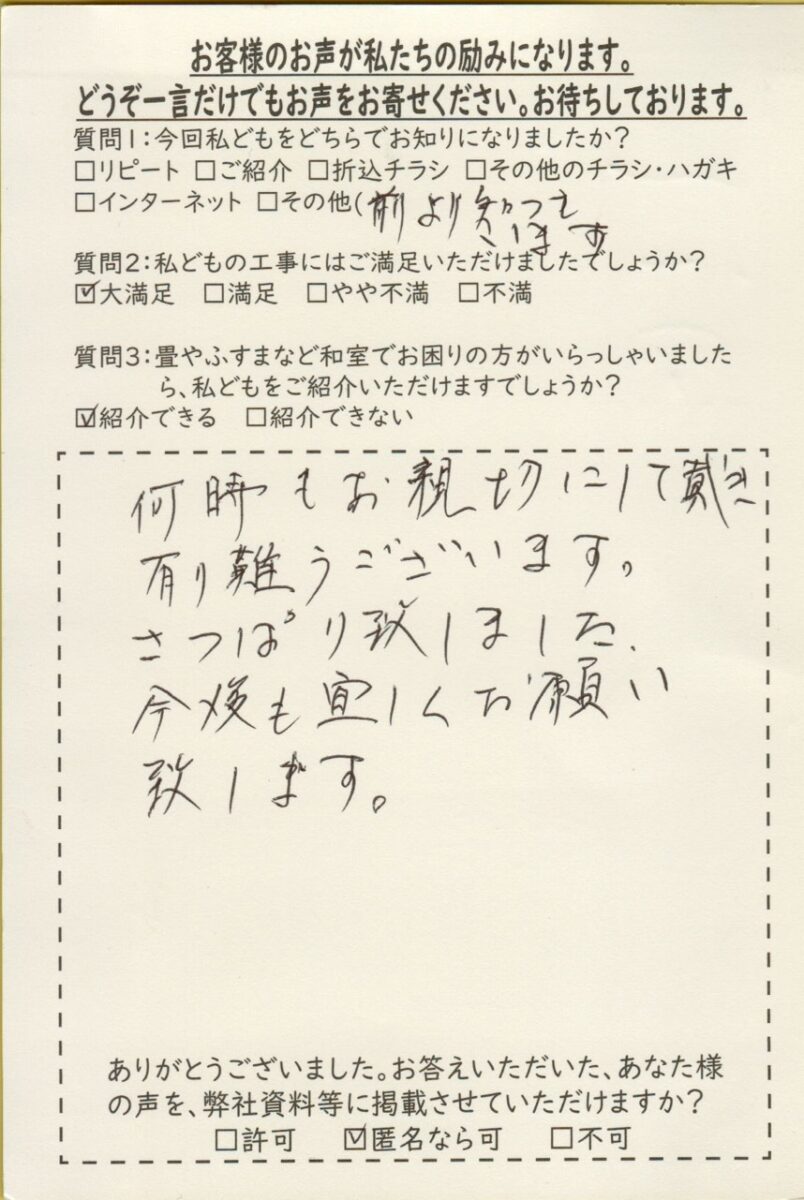 お客様のお声が私たちの励みになります。
どうぞ一言だけでもお声をお寄せください。お待ちしております。
質問1:今回私どもをどちらでお知りになりましたか?
□リピート □ご紹介 □折込チラシ □その他のチラシ・ハガキ
□インターネット □その他(前より知って
います
質問2:私どもの工事にはご満足いただけましたでしょうか?
☑大満足 □満足 □やや不満 □不満
質問3:畳やふすまなど和室でお困りの方がいらっしゃいました
ら、私どもをご紹介いただけますでしょうか?
☑紹介できる □紹介できない
何時もお親切にして戴き
有り難うございます。
さっぱり致しました.
今後も宜しくお願い
致します。
ありがとうございました。お答えいただいた、あなた様
の声を、弊社資料等に掲載させていただけますか?
□許可 ☑匿名なら可 □不可